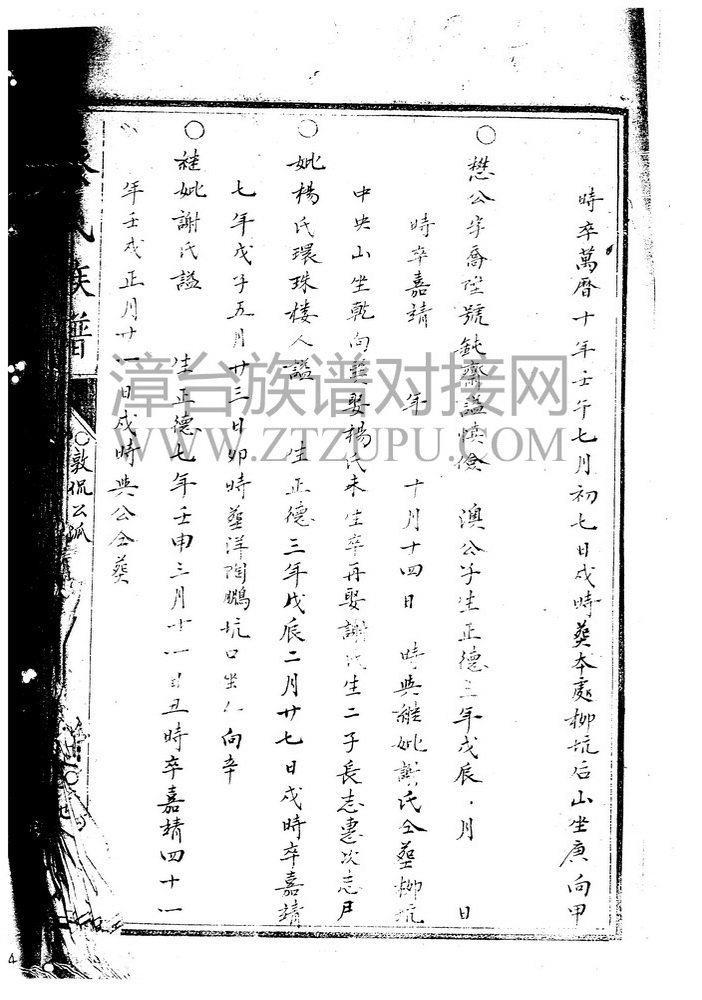 時卒萬曆十年壬午七月初七日戍時葬本處柳坑后山坐庚向甲
○懋公字喬陞號鈍齋謚慎儉 澳公子生正德三年戊辰 月 日
時卒嘉靖 年 十月十四日 時與継妣謝氏仝塟柳坑
中央山坐乾向 娶楊氏未生卒再娶謝氏生二子長志惠次志
○妣楊氏環珠楼人謚 生正德三年戊辰二月廿七日戍時卒嘉靖
七年戊子五月廿三日卯時塟洋陶鵬坑口坐乙向辛
○継妣謝氏謚 生正德七年壬申三月十一日丑時卒嘉靖四十一
年壬戍正月廿一日戍時與公仝葬
氏族譜
○敦侃公派
漳台族谱对接网
WWW.ZTZUPU.COM
4